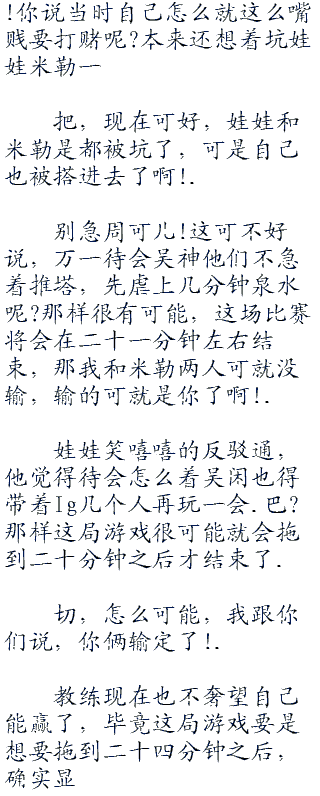 !你说当时自己怎么就这么嘴
贱要打赌呢?本来还想着坑娃
娃米勒一
把，现在可好，娃娃和
米勒是都被坑了，可是自己
也被搭进去了啊!.
别急周可儿!这可不好
说，万一待会吴神他们不急
着推塔，先虐上几分钟泉水
呢?那样很有可能，这场比赛
将会在二十一分钟左右结
束，那我和米勒两人可就没
输，输的可就是你了啊!.
娃娃笑嘻嘻的反驳通，
他觉得待会怎么着吴闲也得
带着Ig几个人再玩一会.巴?
那样这局游戏很可能就会拖
到二十分钟之后才结束了.
切，怎么可能，我跟你
们说，你俩输定了!.
教练现在也不奢望自己
能赢了，毕竟这局游戏要是
想要拖到二十四分钟之后，
确实显